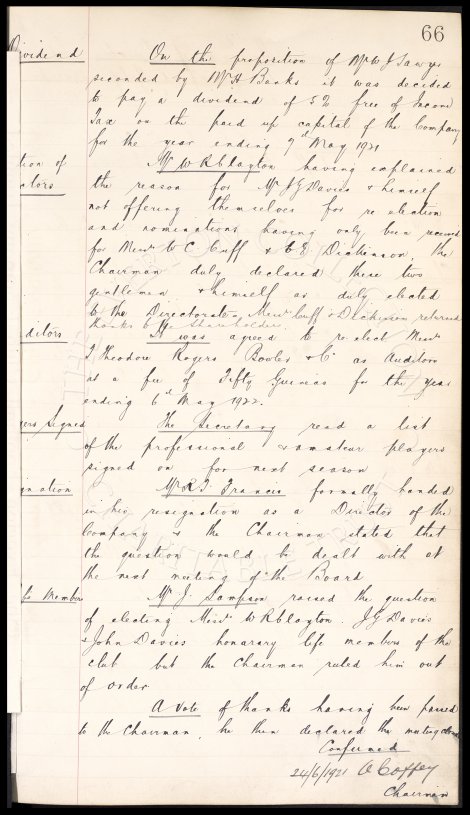 66
Dividend
On the proposition of Mr W J Sawyer
seconded by Mr A Banks it was decided
to pay a dividend of 5% free of Income
Tax on the paid up capital of the Company
for the year ending 7th May 1921
tion of
ctors
Mr W R Clayton having explained
the reason for Mr J G Davies & himself
not offering themselves for re election
and nominations having only been received
for Messrs W C Cuff & E Dickinson, the
Chairman duly declared these two
gentlemen & himself as duly elected
to the Directorate, Messrs Cuff & Dickinson returned
thanks to the shareholders.
ditors
It was agreed to re-elect Messrs
Theodore Rogers Bowler & Co as Auditors
at a fee of Fifty Guineas for the year
ending 6th May 1922.
yers Signed
The Secretary read a list
of the professional & amateur players
signed on for next season
gnation
Mr R T Francis formally handed
in his resignation as a Director of the
Company & the Chairman stated that
the question would be dealt with at
the next meeting of the Board
fe Members
Mr J. Sampson raised the question
of electing Messrs W R Clayton. J G Davies
& John Davies honorary life members of the
club but the Chairman ruled him out
of order
A vote of thanks having been passed
to the Chairman, he then declared the meeting closed
Confirmed
24/6/1921
Chairman